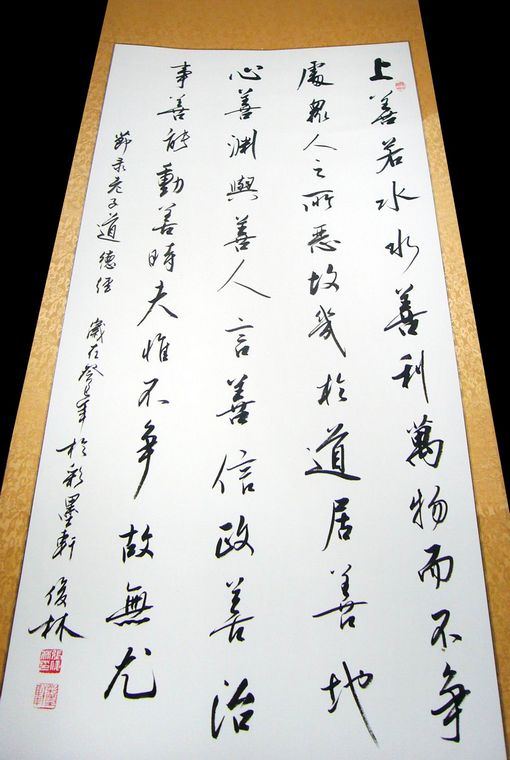 上善若水水善利萬物而不争
處眾人之所惡故幾於道居善地
心善渊與善人言善信政善治
事善能動善時夫惟不争故無尤
節录老子道德经 歲在癸巳年於彩墨軒 俊林